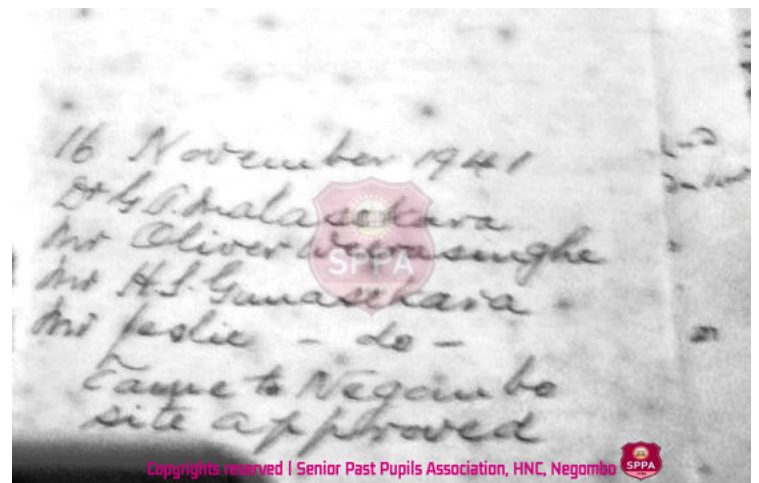 16 November 1941
Dr G. P. Malasekara
Mr Oliver Weerasinghe
Mr H.S. Gunasekara
Mr Leslie - do -
Came to Negombo
site approved
SPPA
Copyrights reserved | Senior Past Pupils Association, HNC, Negombo
SPPA